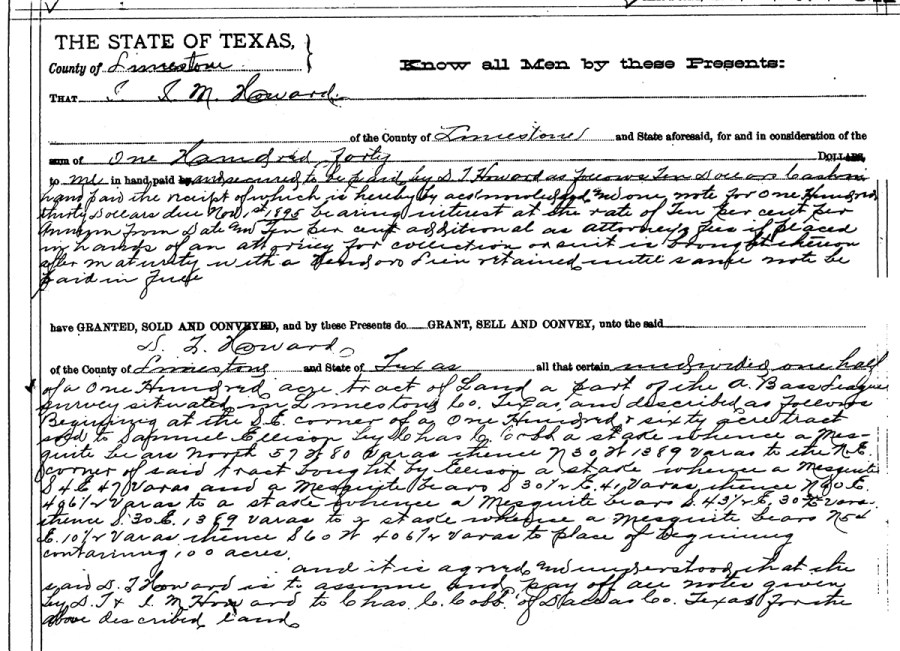 THE STATE OF TEXAS,
County of Limestone
Know all Men by these Presents:
THAT I I. M. Howard
of the County of Limestone and State aforesaid, for and in consideration of the
sum of One Hundred Forty DOLLARS,
to me in hand paid by and secured to be paid by D. T. Howard as follows Ten Dollars Cash in
hand paid the receipt of which is hereby acknowledged and one note for One Hundred
thirty Dollars due Nov. 1st 1895 bearing interest at the rate of Ten per cent per
Annum from date and Ten per cent additional as attorneys fees if placed
in hands of an attorney for collection or suit is brought thereon
after maturity with a Vendors Lien retained until same note be
paid in full
have GRANTED, SOLD AND CONVEYED, and by these Presents do GRANT, SELL AND CONVEY, unto the said
D. T. Howard
of the County of Limestone and State of Texas all that certain undivided one half
of a One Hundred acre tract of Land a part of the A. Bass League
survey situated in Limestone Co. Texas and described as follows
Beginning at the S.E. corner of a One Hundred & sixty acre tract
sold to Samuel Ellison by Chas C. Cobb a stake whence a Mes-
quite bears North 57 W 80 varas thence N 30 W 1389 varas to the N.E.
corner of said tract bought by Ellison a stake whence a Mesquite
S 4 E 47 varas and a Mesquite bears S 30 1/2 E 41 varas, thence N 60 E.
406 1/2 varas to a stake whence a Mesquite bears S. 43 1/2 E. 30 varas
thence S. 30 E. 1389 varas to a stake whence a Mesquite bears N 54
E. 10 1/2 varas thence S 60 W 406 1/2 varas to place of beginning
containing 100 acres.
and it is agreed and understood that the
said D. T. Howard is to assume and pay off all notes given
by D. T. & I. M. Howard to Chas. C. Cobb of Dallas Co. Texas for the
above described Land